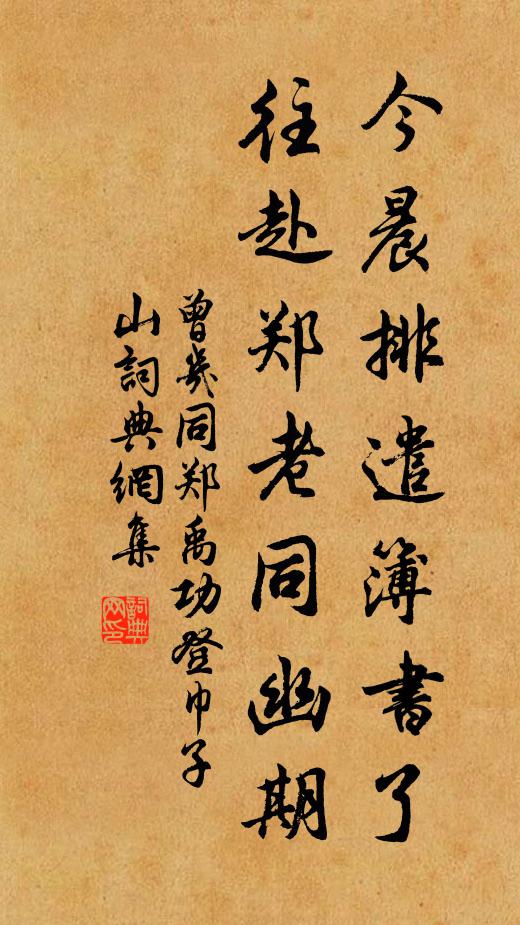 今晨排遣簿书了
往赴郑老同幽期
曾几同郑禹功登巾子
山词典網集
詞典
网印